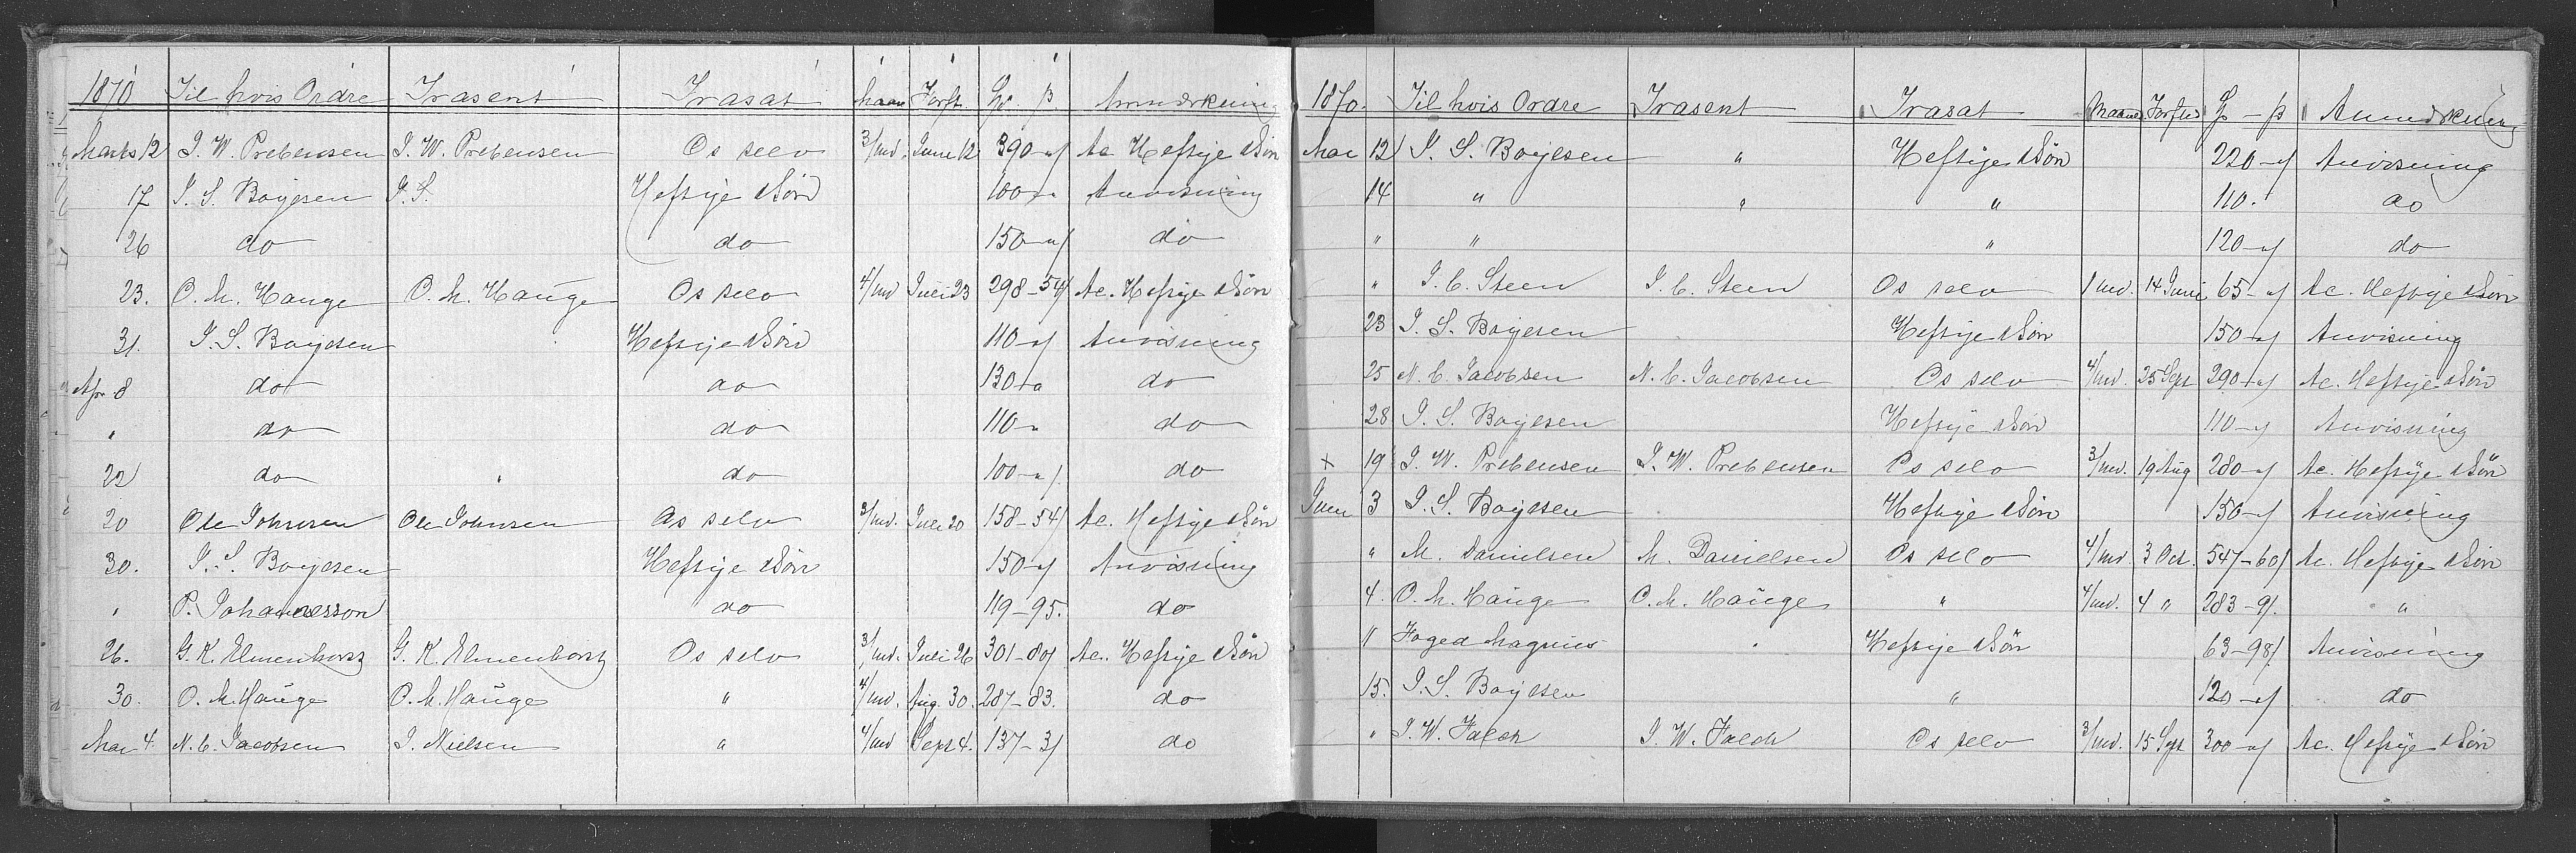 1870 Til hvis Ordre Trasent Trasat Maan Forft. Spd. ß Anmærkning
Marts 12 J. W. Prebensen J. W. Prebensen Os selv 3/md. Juni 12 390 - " Ac Heftye & Søn
17 J. S. Boyesen J. S. Heftye & Søn 100 - " Anvisning
26 do do 150 - " do
23. O. M. Hauge O. M. Hauge Os selv 4/md Juli 23 298 - 54 Ac. Heftye & Søn
31. J. S. Boyesen Heftye & Søn 110 - " Anvisning
Apr. 8 do do 130 - " do
" do do 110 - " do
22 do " do 100 - " do
20 Ole Johnsen Ole Johnsen Os selv 3/md. Juli 20 158 - 54 Ac. Heftye & Søn
30. J. S. Boyesen Heftye & Søn 150 - " Anvisning
" P. Johannesson do 119 - 95. do
26. G. K. Elmenhorst G. K. Elmenhorst Os selv 3/md. Juli 26 301 - 80 Ac. Heftye & Søn
30. O. M. Hauge O. M. Hauge " 4/md. Aug. 30. 287 - 83. do
Mai 4. N. C. Jacobsen J. Nielsen " 4/md Sept 4. 137 - 31 do
1870. Til hvis Ordre Trasent Trasat Maaned Forfts Sp - ß Anmærkning
Mai 12 J. S. Boyesen " Heftye & Søn 220 - " Anvisning
14 " " " 110. do
" " " 120 - " do
" J. C. Steen J. C. Steen Os selv 1 md. 14 Juni 65 - " Ac. Heftye & Søn
23 J. S. Boyesen Heftye & Søn 150 - " Anvisning
25 N. C. Jacobsen N. C. Jacobsen Os selv 4/md. 25 Sept 290 - " Ac. Heftye & Søn
28 J. S. Boyesen Heftye & Søn 110 - " Anvisning
x 19 J. W. Prebensen J. W. Prebensen Os selv 3/md. 19 Aug 280 - " Ac. Heftye & Søn
Juni 3 J. S. Boyesen Heftye & Søn 150 - " Anvisning
" M. Danielsen M. Danielsen Os selv 4/md 3 Oct. 547 - 60 Ac. Heftye & Søn
4. O. M. Hauge O. M. Hauge " 4/md. 4 " 283 - 91. "
" Foged Magnus " Heftye & Søn 63 - 98 Anvisning
15. J. S. Boyesen " 120 - " do
" J. W. Falch J. W. Falch Os selv 3/md. 15 Sept 300 - " Ac. Heftye & Søn